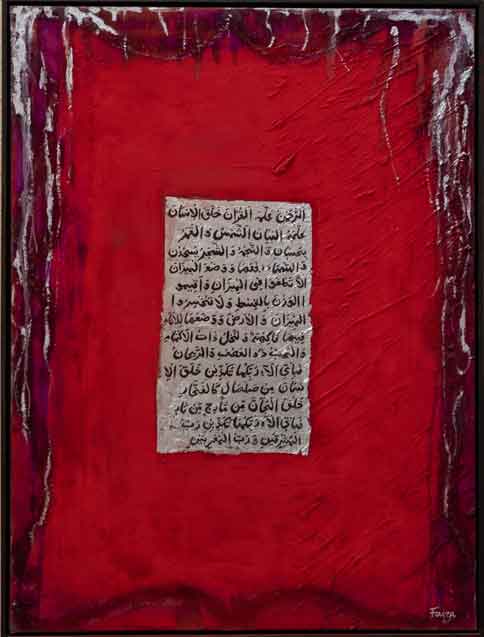 الرَّحْمٰنُ عَلَّمَ الْقُرْآنَ خَلَقَ الْاِنْسَانَ
عَلَّمَهُ الْبَيَانَ الشَّمْسُ وَ الْقَمَرُ
بِحُسْبَانٍ وَ النَّجْمُ وَ الشَّجَرُ يَسْجُدٰنِ
وَ السَّمَآءَ رَفَعَهَا وَ وَضَعَ الْمِيْزَانَ
اَلَّا تَطْغَوْا فِى الْمِيْزَانِ وَ اَقِيْمُو
الْوَزْنَ بِالْقِسْطِ وَ لَا تُخْسِرُوا
الْمِيْزَانَ وَ الْاَرْضَ وَ وَضَعَهَا لِلْاَنَامِ
فِيْهَا فَاكِهَةٌ وَ النَّخْلُ ذَاتُ الْاَكْمَامِ
وَ الْحَبُّ ذُو الْعَصْفِ وَ الرَّيْحَانُ
فَبِاَىِّ اٰلَآءِ رَبِّكُمَا تُكَذِّبٰنِ خَلَقَ الْاِ
نْسَانَ مِنْ صَلْصَالٍ كَالْفَخَّارِ
خَلَقَ الْجَآنَّ مِنْ مَّارِجٍ مِّنْ نَّارٍ
فَبِاَىِّ اٰلَآءِ رَبِّكُمَا تُكَذِّبٰنِ رَبُّ
الْمَشْرِقَيْنِ وَ رَبُّ الْمَغْرِبَيْنِ